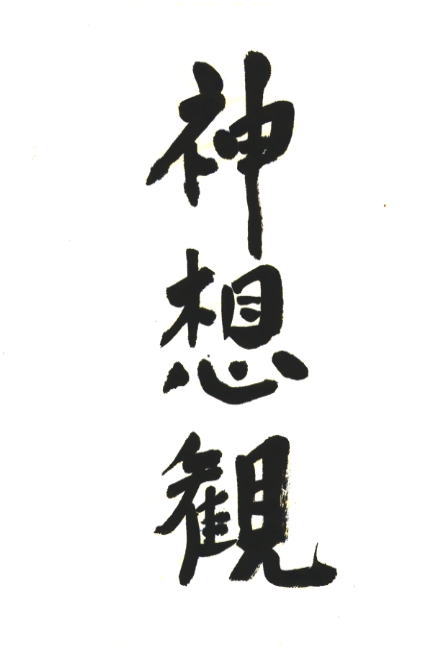 神想観